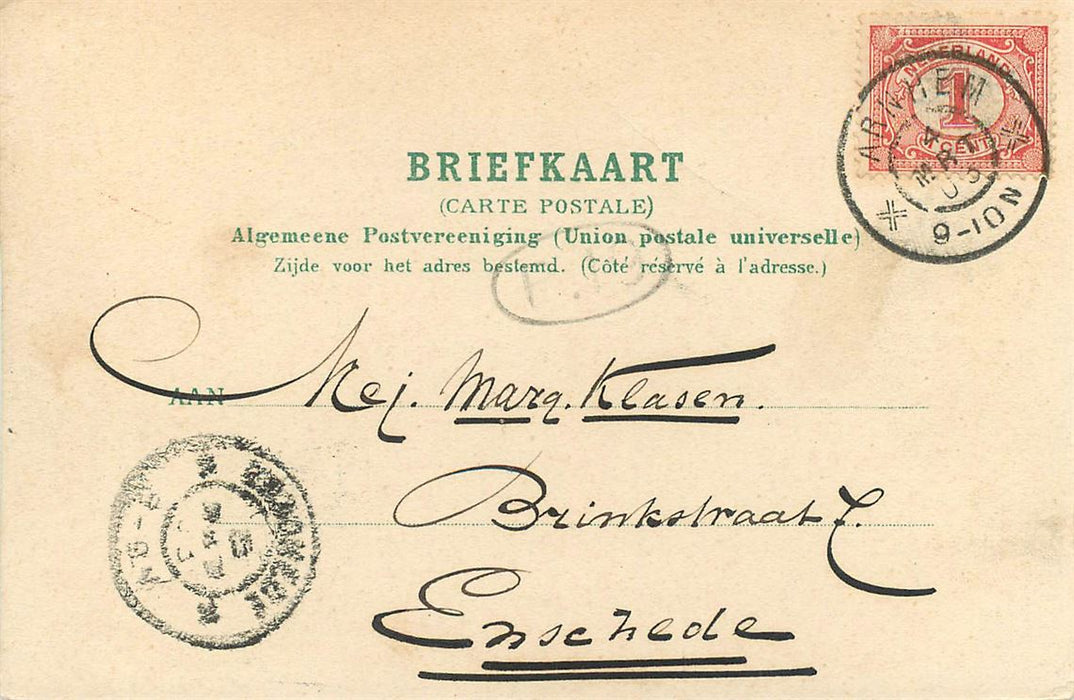 NEDERLAND
1
CENT
ARNHEM
4
MRT
03
9-10N
BRIEFKAART
(CARTE POSTALE)
Algemeene Postvereeniging (Union postale universelle)
Zijde voor het adres bestemd. (Côté réservé à l'adresse.)
AAN Mej. Marg. Klasen.
Brinkstraat
Enschede